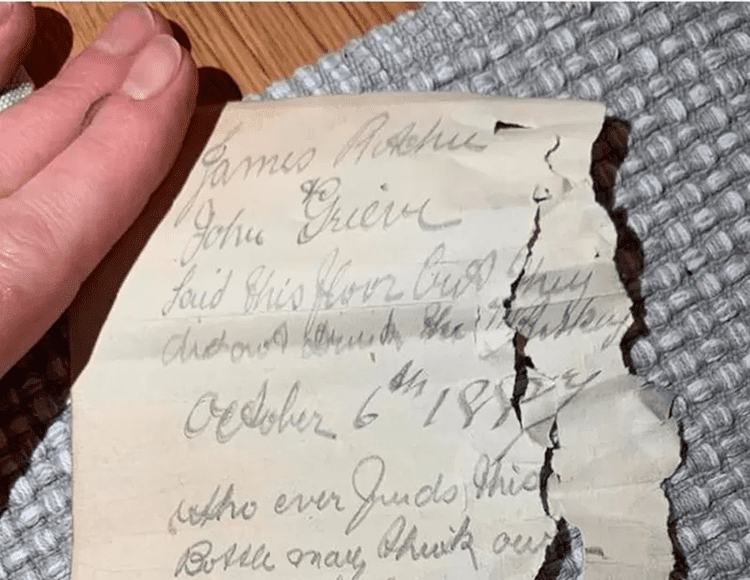 James Ritchie
& John Grieve
laid this floor but they
did not drink the Whisky
October 6th 1887
who ever finds this
Bottle may think our